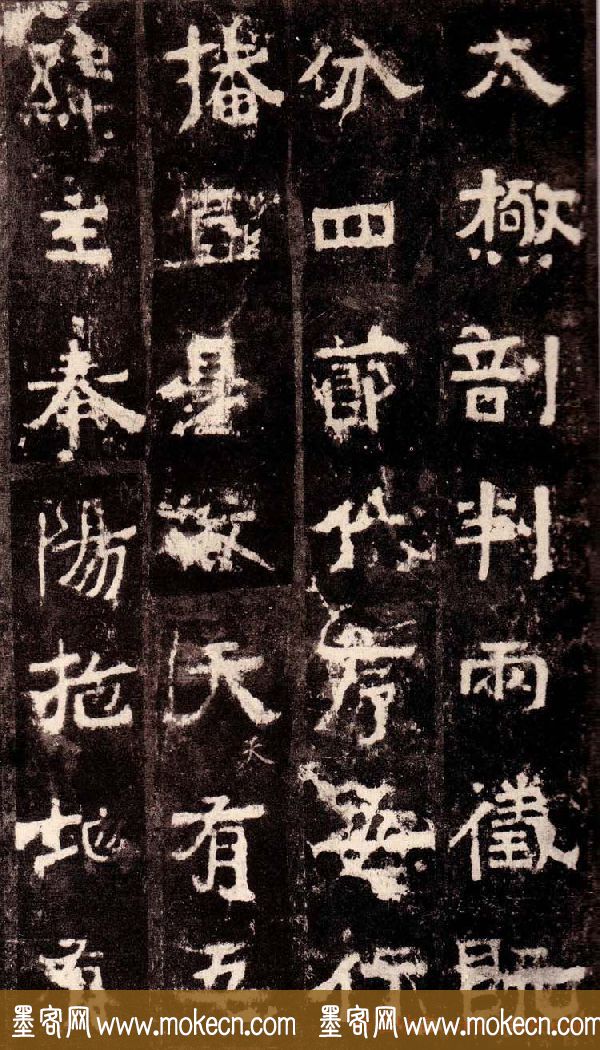 太極剖判兩
分四節代序行
播宣是故天有五
緯主奉陽施地有
天
墨客网 www.mokecn.com 墨客网 www.mokecn.com